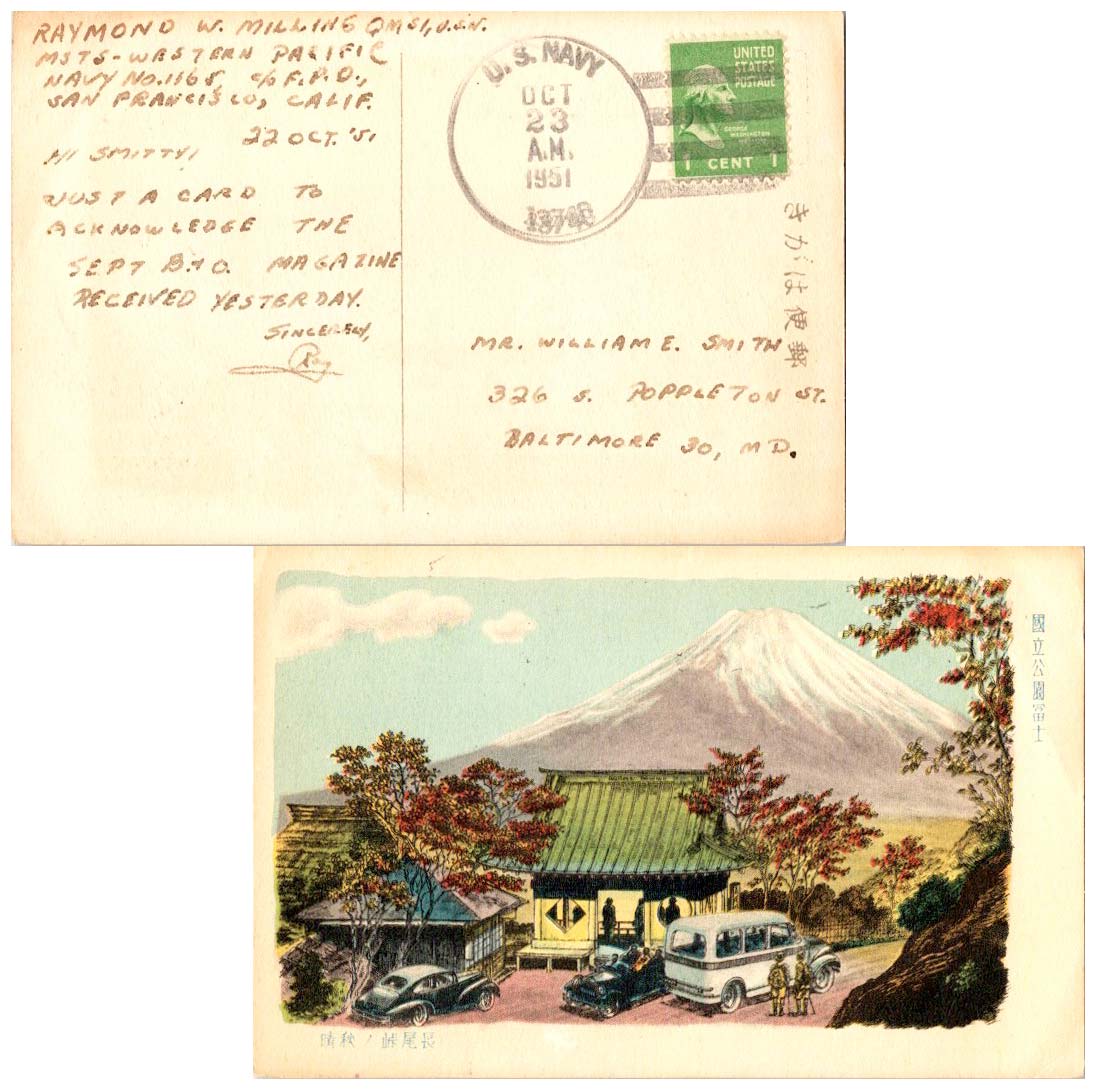 RAYMOND W. MILLING QMS1, U.S.N.
MSTS-WESTERN PACIFIC
NAVY NO. 1165, c/o F.P.O.,
SAN FRANCISCO, CALIF.
22 OCT. '51
HI SMITTY!
JUST A CARD TO
ACKNOWLEDGE THE
SEPT B.+O. MAGAZINE
RECEIVED YESTERDAY.
SINCERELY,
Ray
U.S. NAVY
OCT
23
A.M.
1951
UNITED
STATES
POSTAGE
GEORGE
WASHINGTON
1 CENT 1
きかがは便郵
MR. WILLIAM E. SMITH
326 S. POPPLETON ST.
BALTIMORE 30, MD.
國立公園富士
長尾峠ノ秋晴